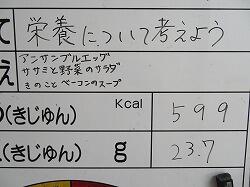 て 栄養について考えよう
え アンサンブルエッグ
ササミと野菜のサラダ
きのことベーコンのスープ
(きじゅん) Kcal 599
(きじゅん) g 23.7